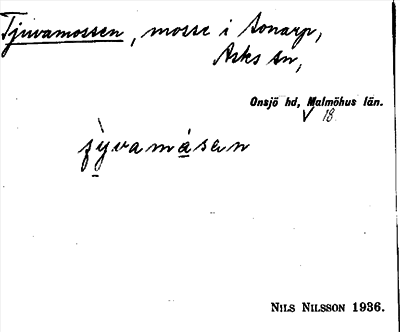 Tjuvamossen, mosse i Aonarp,
Asks sn,
Onsjö hd, Malmöhus län.
V 18
fyvamåsan
NILS NILSSON 1936.